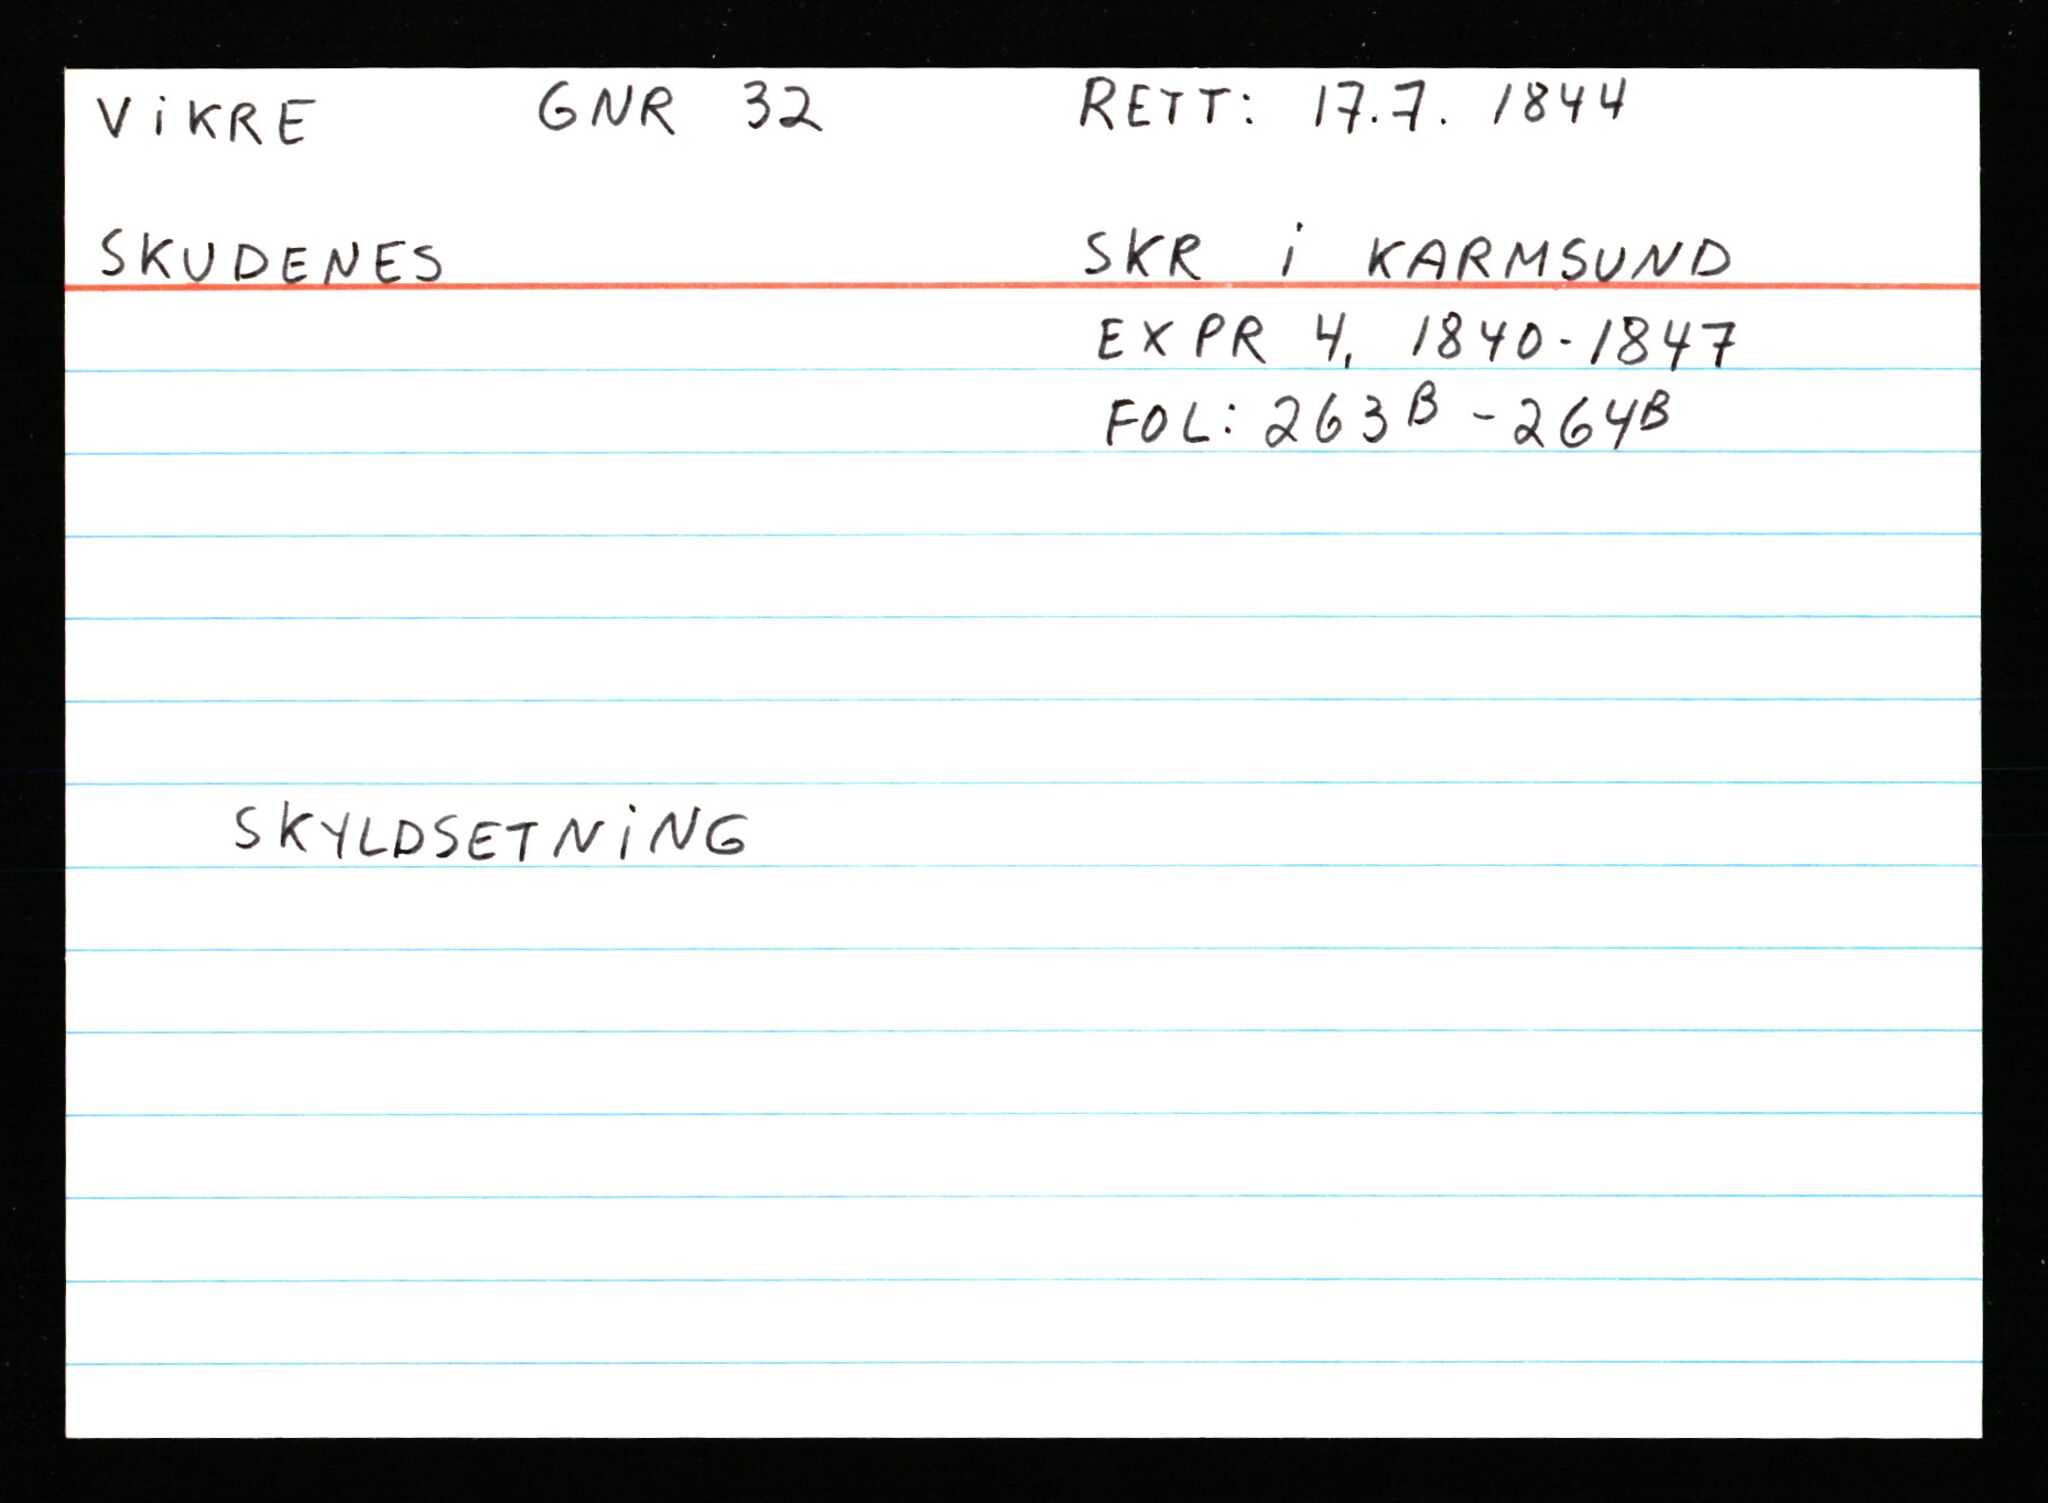 ViKRE GNR 32 RETT: 17.7. 1844
SKUDENES SKR i KARMSUND
EXPR 4, 1840-1847
FOL: 263B - 264B
SKYLDSETNiNG